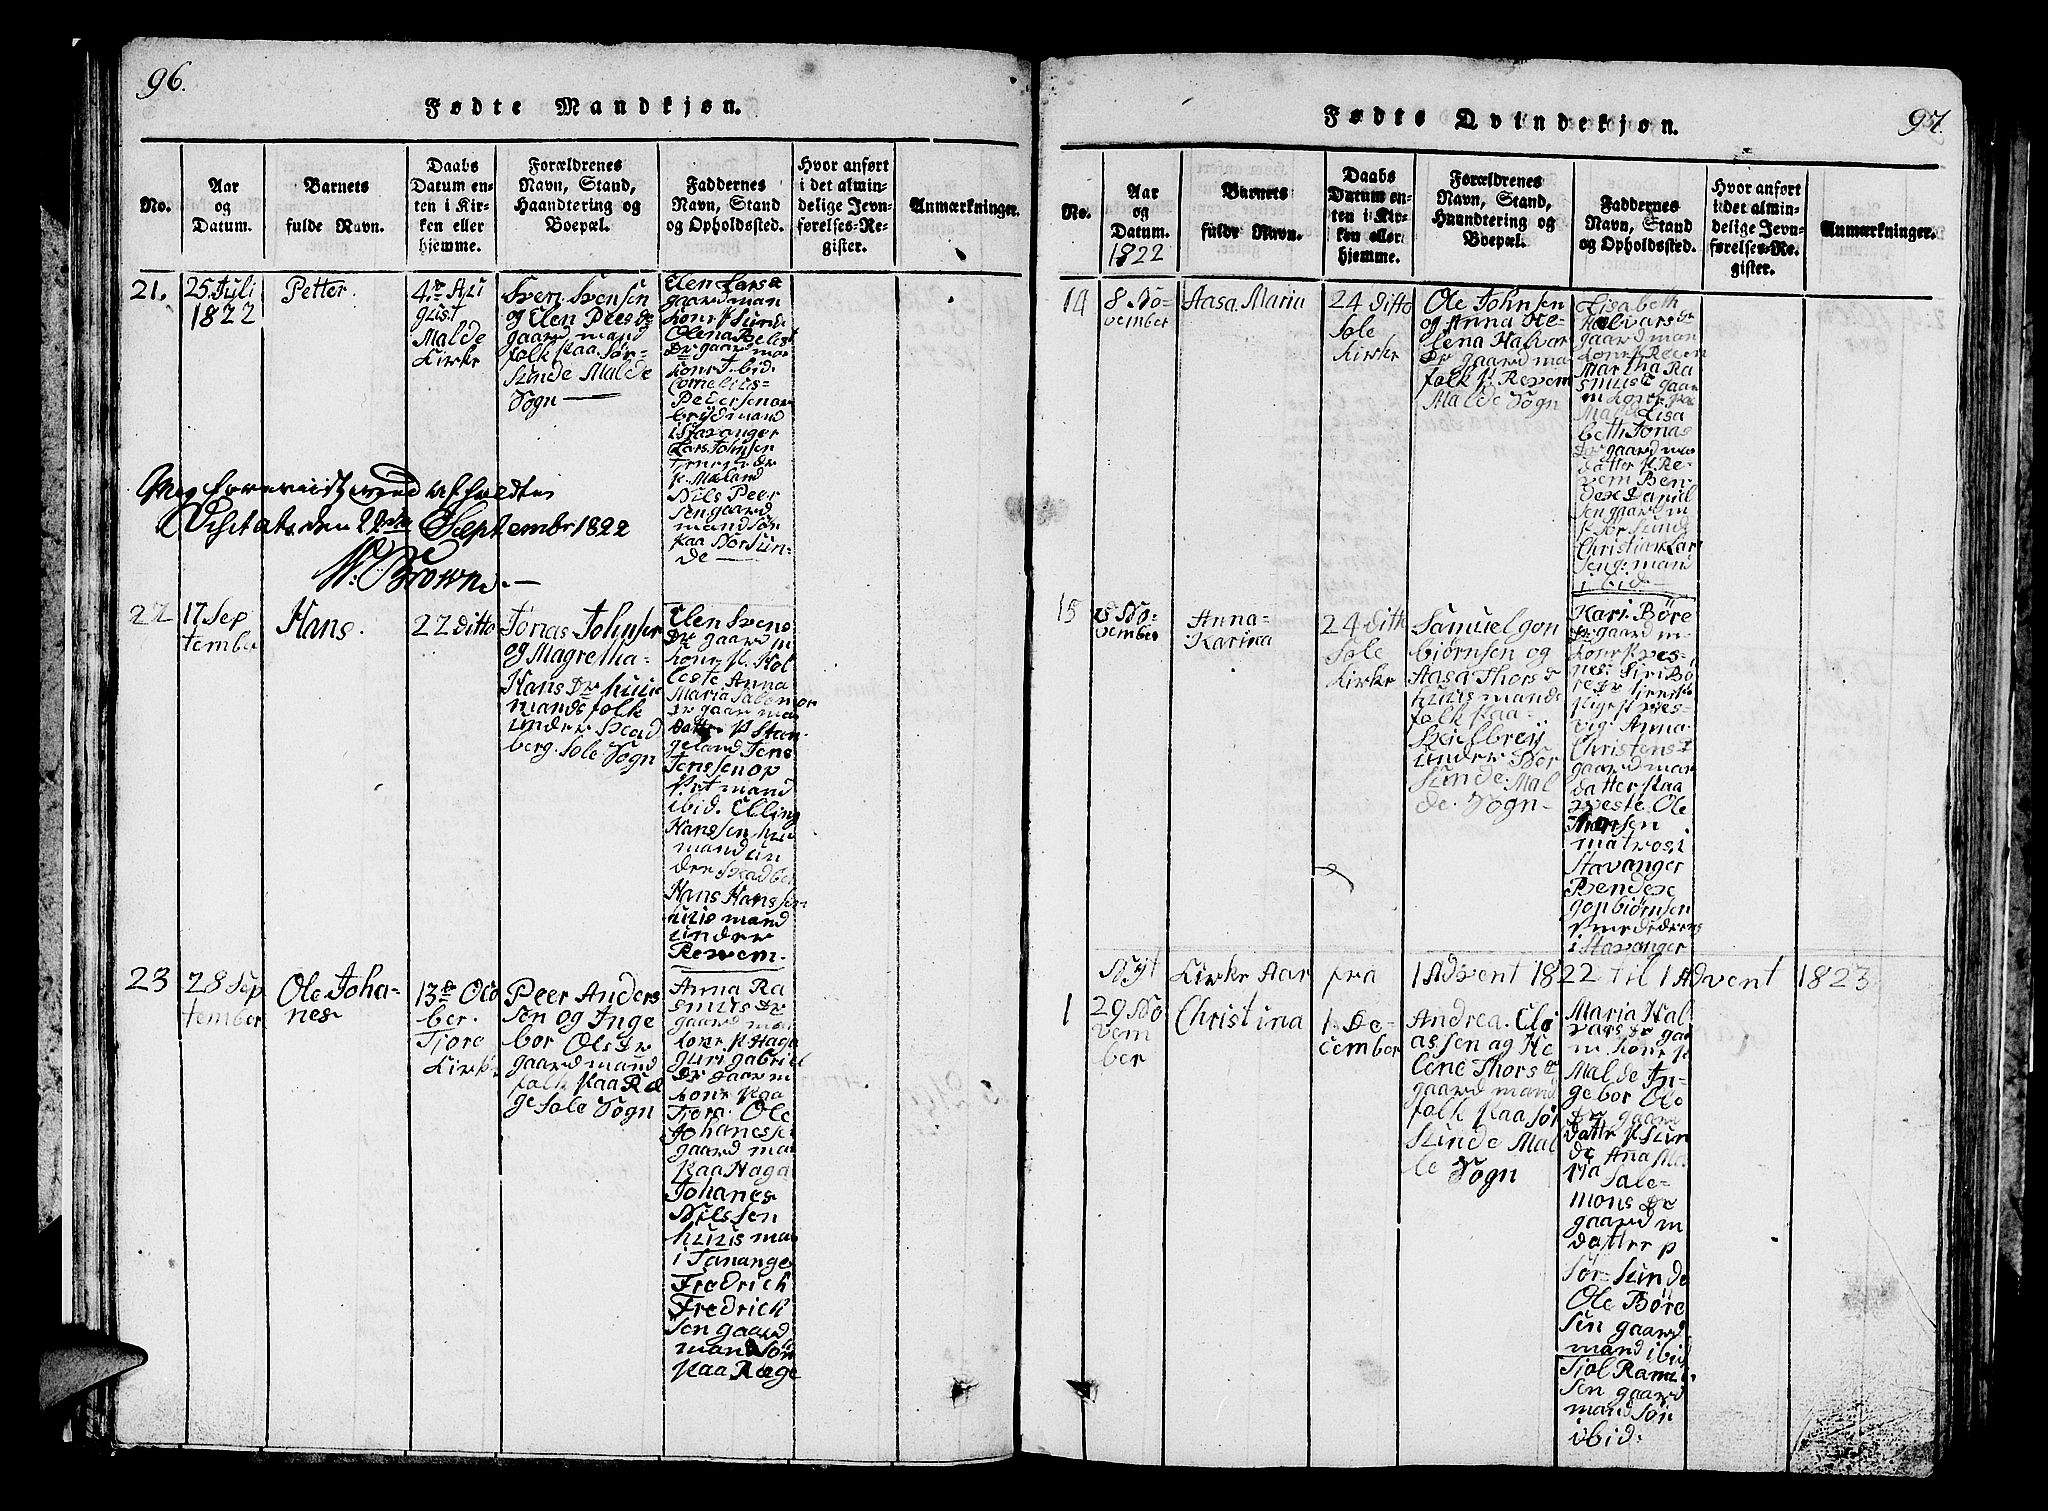 96.
Fødte Mandkjøn.
No.
Aar
og
Datum.
Barnets
fulde Navn.
Daabs
Datum en-
ten i Kir-
ken eller
hjemme.
Forældrenes
Navn, Stand,
Haandtering og
Boepæl.
Faddernes
Navn, Stand
og Opholdssted.
Hvor anført
i det almin-
delige Jevn-
førelses-Re-
gister.
Anmærkninger.
21.
25 Juli
1822
Petter
4de Au
gust
Malde
Kirke
Sven Svensen
og Elen Peersdr
gaard mand
folk paa Sør-
Sunde Malde
Sogn
Elen Lars
gaard man
kone p Sunde
Olena
Dr gaard ma
kone ibid.
Cornelius
Pedersen
mand
i Stavanger
Lars Johnsen
p. Meland
Nils Peer
sen gaard
mand søn
paa Nor Sun-
de
den 22de September 1822
Brown
22
17 Sep
tember
Hans.
22 ditto
Jonas Johnsen
og Magretha
Hans Dr huus
mands folk
under Skad
berg. Sole Sogn
Elen Svens
Dr gaard m
kone p. Kol
Anna
Maria Salomon
Dr gaar man
datter p Stan-
geland Jens
Jenssen
mand
ibid. Elling
Hanssen huu
mand un
der Skadber
Hans Hanssen
huus mand
under
Revem.
23
28 Sep
tember
Ole Joha-
nes
13de Octo
ber.
Tjora
Kirke
Peer Anders
sen og Inge
bor Ols Dr
gaard mand
folk paa Ræ
ge Sole Sogn
Anna Ra
smus Dr
gaard man
kone p Haga
guri gabriel
Dr gaar m
kone paa
Tjora. Ole
Johanessen
gaard man
paa Haga
Johanes
Nilssen
huus man
i Tananger
Fredrich
Fredrick
sen gaard
mand søn
paa Ræge
97.
Fødte Qvindekjøn.
No.
Aar
og
Datum.
1822
Barnets
fulde Navn.
Daabs
Datum en-
ten i Kir-
ken eller
hjemme.
Forældrenes
Navn, Stand,
Haandtering og
Boepæl.
Faddernes
Navn, Stand
og Opholdssted.
Hvor anført
i det almin-
delige Jevn-
førelses-Re-
gister.
Anmærkninger.
14
8 No-
vember
Aasa Maria
24 ditto
Sole
Kirke
Ole Johnsen
og Anna He-
lena Halvor
Dr gaard ma
folk p. Revem
Malde Sogn
Lisabeth
Halvors
gaard man
kone p Reven
Martha Ra
smus gaar
m kone paa
Malde Lisa
beth Jonas
Dr gaard ma
datter p. Re-
vem Ben-
dex Daniel
sen gaard m
p Sør Sunde
Christian Lar
sen g. mand
ibid
15
8 No-
vember
Anna
Karina
24 ditto
Sole
Kirke
Samuel gon
biørnsen og
Aasa Thors
huus mands
folk paa
under Nor
Sunde. Mal
de. Sogn
Kari Børe
Dr gaard m
kone p
Siri Bø
re Dr tjeneste
pige p
Anna
Christens
gaard man
datter paa
Ole
Thorsen
matros i
Stavanger
Bendex
gonbiørnsen
i Stavanger
Nyt Kirke Aar fra 1 Advent 1822 til 1 Advent 1823
1
29 No
vem
ber
Christina
1 De-
cember
Andrea. Cla
assen og He
lene Thors
gaard mand
folk paa Sør
Sunde Mal
de Sogn
Maria Hal
vors Dr gaa
m kone p
Malde In-
gebor Ole
Dr gaard
datter p Sun
de Ana Ma
ria Sale-
mons Dr
gaard m
datter p
Sør Sunde
Ole Børe
sen gaard
mand ibid
sen gaard
mand søn
ibid.